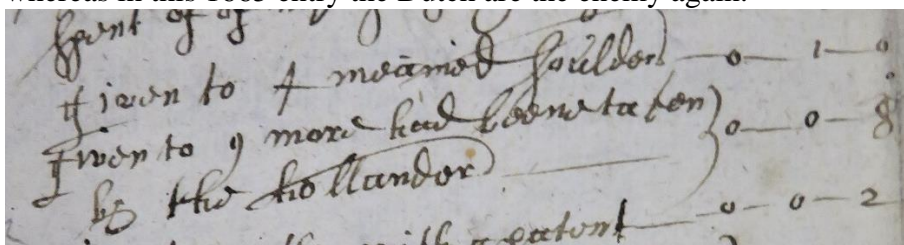 whereas in this 1665 entry the Dutch are the enemy again.
spent
Given to 4 meamed soulders 0 1 0
Given to 9 more had beene taken 0 0 8
by the hollander
with a patent 0 0 2